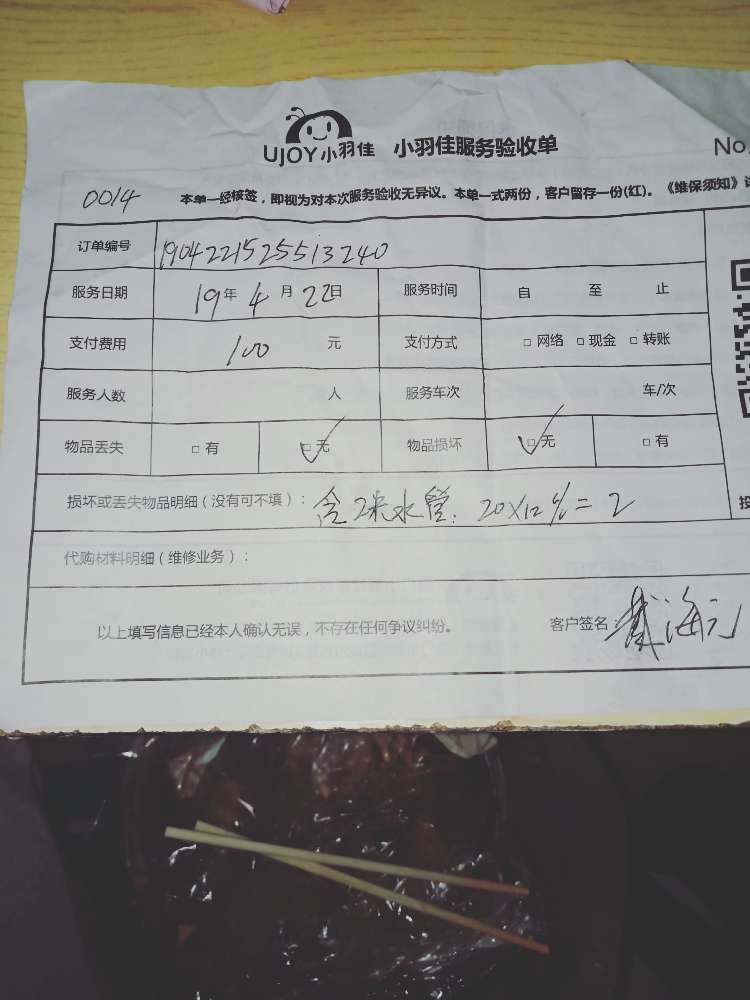 UJOY小羽佳 小羽佳服务验收单 No.
0014 本单一经核签，即视为对本次服务验收无异议。本单一式两份，客户留存一份(红)。《维保须知》
订单编号 1904221525513240
服务日期 19年4月22日 服务时间 自 至 止
支付费用 100 元 支付方式 □网络 □现金 □转账
服务人数 人 服务车次 车/次
物品丢失 □有 □无 物品损坏 □无 □有
损坏或丢失物品明细（没有可不填）： 含2米水管. 20×12%=2
代购材料明细（维修业务）：
以上填写信息已经本人确认无误，不存在任何争议纠纷。 客户签名：